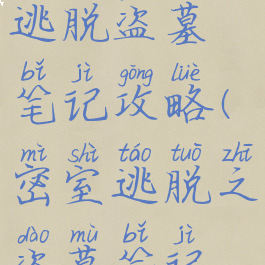 逃脱盗墓
bǐ jì gōng lüè
笔记攻略(
mì shì táo tuō zhī
密室逃脱之
dào mù bǐ jì
盗墓笔记